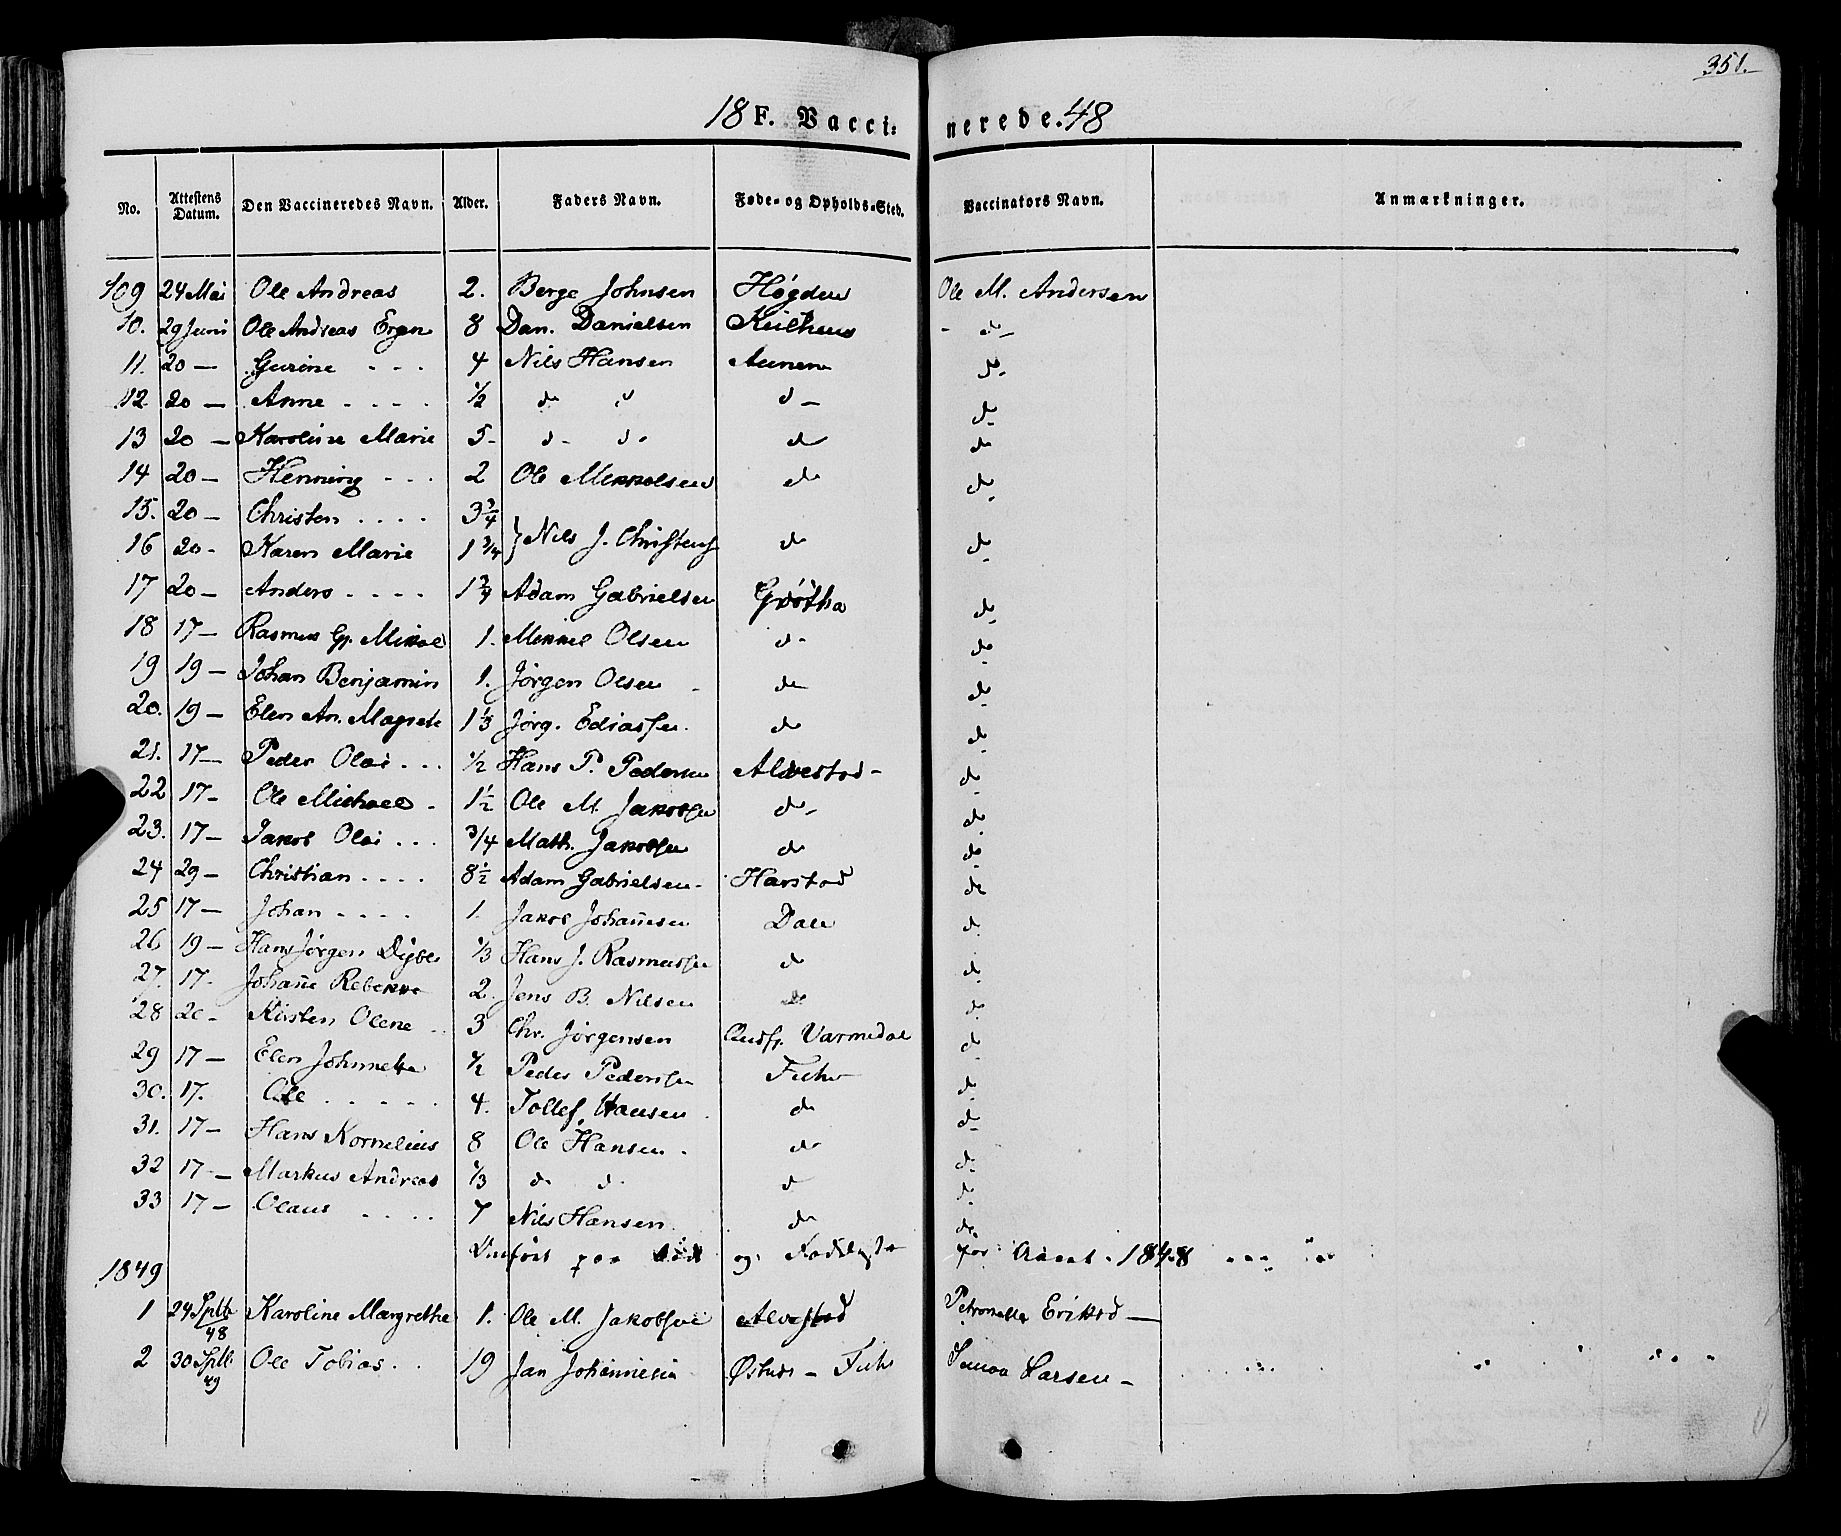 351.
18 F. Vacci= nerede. 48
No. Attestens Datum. Den Vaccineredes Navn. Alder. Faders Navn. Føde- og Opholds-Sted. Vaccinators Navn. Anmærkninger.
109 24 Mai Ole Andreas 2. Berge Johnsen Høgden Ole M. Andersen
10. 29 Juni Ole Andreas 8 Dan. Danielsen - do -
11. 20 — Gurine - - - 4 Nils Hansen Aunen do -
12 20 — Anne - - - - 1/2 do d d — do
13 20 — Karoline Marie 5- d- do do do
14 20 — Henning - - - 2 Ole Mikkelsen do do
15. 20 — Christen . . . . 3 3/4
16 20 - Karen Marie 1 3/4 } Nils J. Christens do do
17 20 — Anders - - - - 1 3/4 Adam Gabrielsen Grøtha do
18 17 — Rasmus Gj. Mikal 1. Mikkel Olsen do do
19 19 — Johan Benjamin 1. Jørgen Olsen - do do
20. 19 — Elen An. Magrete 1 1/3 Jørg. Ediassen. do do
21. 17 — Peder Olai - - - 1/2 Hans P. Pedersen Alvestad - do
22 17 - Ole Michael - 1 1/2 Ole M. Jakobsen do - do
23. 17 — Jakob Olai . . . 3/4 Math. Jakobsen do do
24 29 — Christian - - - - 8 1/2 Adam Gabrielsen - Harstad do
25 17 — Johan - - - - 1. Jakob Johannesen Dale do
26 19 — Hans Jørgen 1/3 Hans J. Rasmussen do do
27. 17. Johanne Rebekka 2. Jens B. Nilsen do do
28 20 - Kirsten Olene - 3 Chr. Jørgensen Varmedal do
29 17 — Elen Johnnetta 1/2 Peder Pedersen do
30. 17. Ole . . . . . 4. Tollef Hansen do do
31. 17 — Hans Kornelius 8 Ole Hansen . do do
32 17 — Markus Andreas 1/3 do do do do
33 17 — Olaus . . . . 7 Nils Hansen do do
og for Aaret 1848
1849
1 24 Sptb 48 Karoline Margrethe 1. Ole M. Jakobsen Alvestad Petronelle —
2 30 Sptb. 49 Ole Tobias . . 19 Jan Johannesen Larsen —